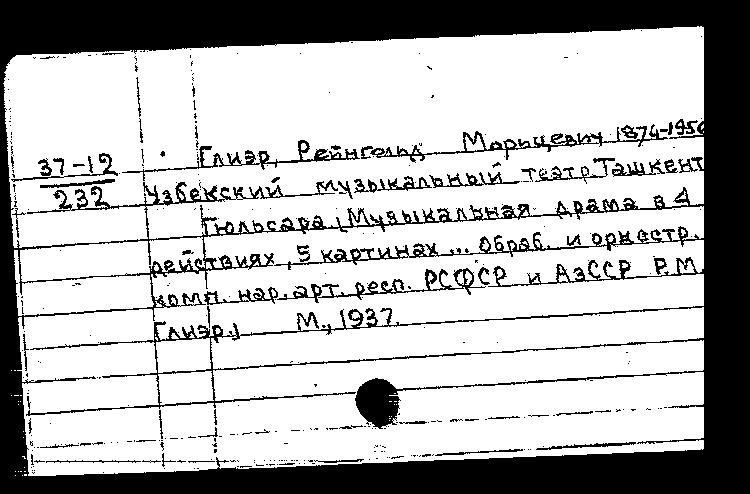 37-12
232
Глиэр, Рейнгольд Морицевич 1874-1956
Узбекский музыкальный театр. Ташкент
Гюльсара. [Музыкальная драма в 4
действиях, 5 картинах... Обраб. и оркестр.
комп. нар. арт. респ. РСФСР и АзССР Р.М.
Глиэр.] М., 1937.